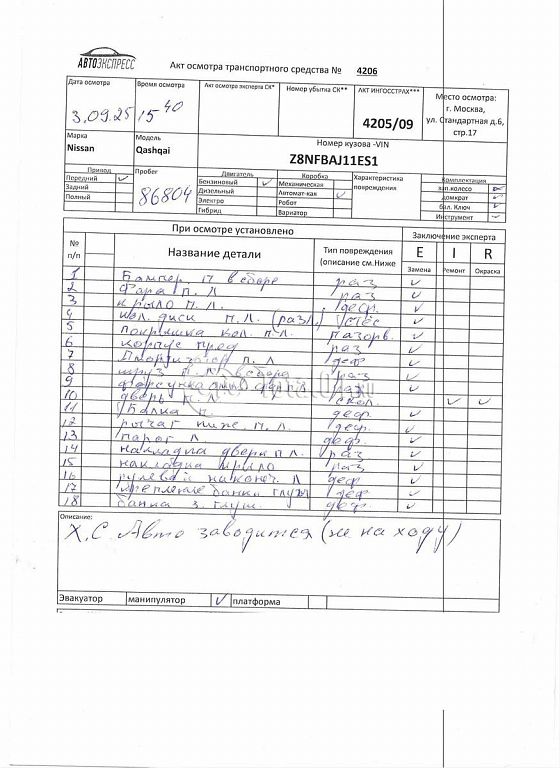 АВТОЭКСПРЕСС
Акт осмотра транспортного средства № 4206
Дата осмотра Время осмотра Акт осмотра эксперта СК* Номер убытка СК** АКТ ИНГОССТРАХ*** Место осмотра:
г. Москва,
ул. Стандартная д.6,
стр.17
3.09.25 15 40 4205/09
Марка Модель Номер кузова -VIN
Nissan Qashqai Z8NFBAJ11ES1
Привод Пробег Двигатель Коробка Характеристика повреждения Комплектация
Передний ✓ 86804 Бензиновый ✓ Механическая зап.колесо ✓
Задний Дизельный Автомат-кая ✓ домкрат ✓
Полный Электро Робот бал. Ключ ✓
Гибрид Вариатор Инструмент ✓
При осмотре установлено Заключение эксперта
№ п/п Название детали Тип повреждения (описание см.Ниже E I R
Замена Ремонт Окраска
1 Бампер. п в сборе раз ✓
2 Фара п. л раз ✓
3 крыло п. л. деф. ✓
4 кол. диск п. л. (разл.) ✓
5 покрышка кол. п. л. ✓
6 корпус ✓
7 Амортизатор п. л деф ✓
8 шруз п. л в сборе раз ✓
9 форсунка раз ✓
10 дверь п. л скол. ✓ ✓
11 Балка п. деф. ✓
12 рычаг ниж. п. л. деф. ✓
13 порог л деф. ✓
14 накладка двери п. л раз ✓
15 накладка крыло раз ✓
16 рулевой наконеч. л деф ✓
17 крепление банки глуш деф ✓
18 банка з. глуш. деф. ✓
Описание:
Х.С. Авто заводится (не на ходу)
Эвакуатор манипулятор ✓ платформа